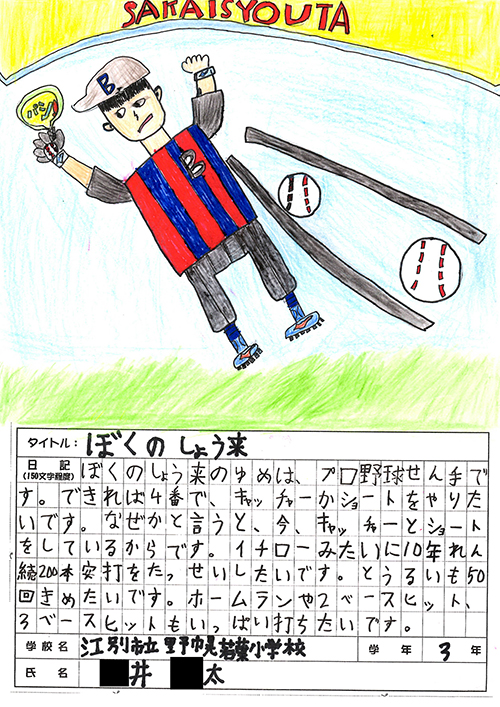 SAKAISYOUTA
バシ!
B
B
タイトル: ぼくのしょう来
日記
(150文字程度)
ぼくのしょう来のゆめは、プロ野球せん手で
す。できれば4番で、キャッチーかショートをやりた
いです。なぜかと言うと、今、キャッチーとショート
をしているからです。イチローみたいに10年れん
続200本安打をたっせいしたいです。とうるいも50
回きめたいです。ホームランや2ベースヒット、
3ベースヒットもいっぱい打ちたいです。
学校名 江別市立野幌若葉小学校 学年 3年
氏名 井 太